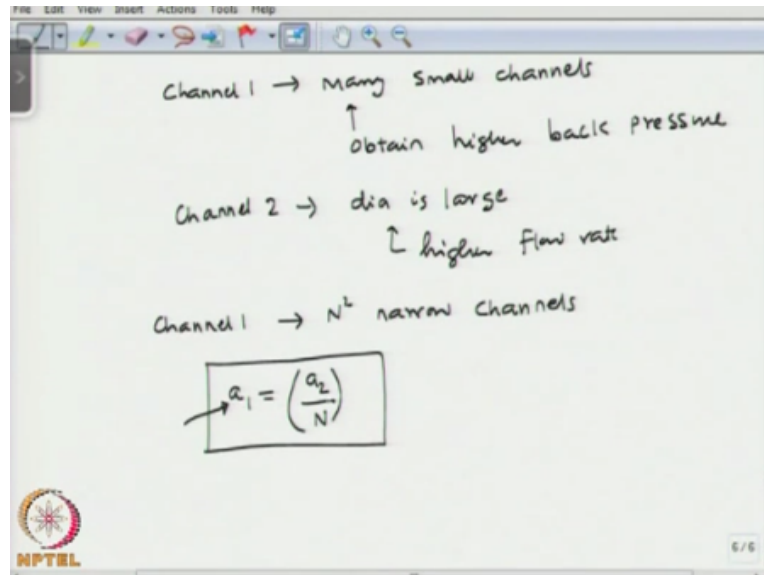 File Edit View Insert Actions Tools Help
Channel 1 → Many small channels
↑
obtain higher back pressure
Channel 2 → dia is large
↑ higher flow rate
Channel 1 → N² narrow channels
→ a₁ = (a₂/N)
NPTEL
6/6